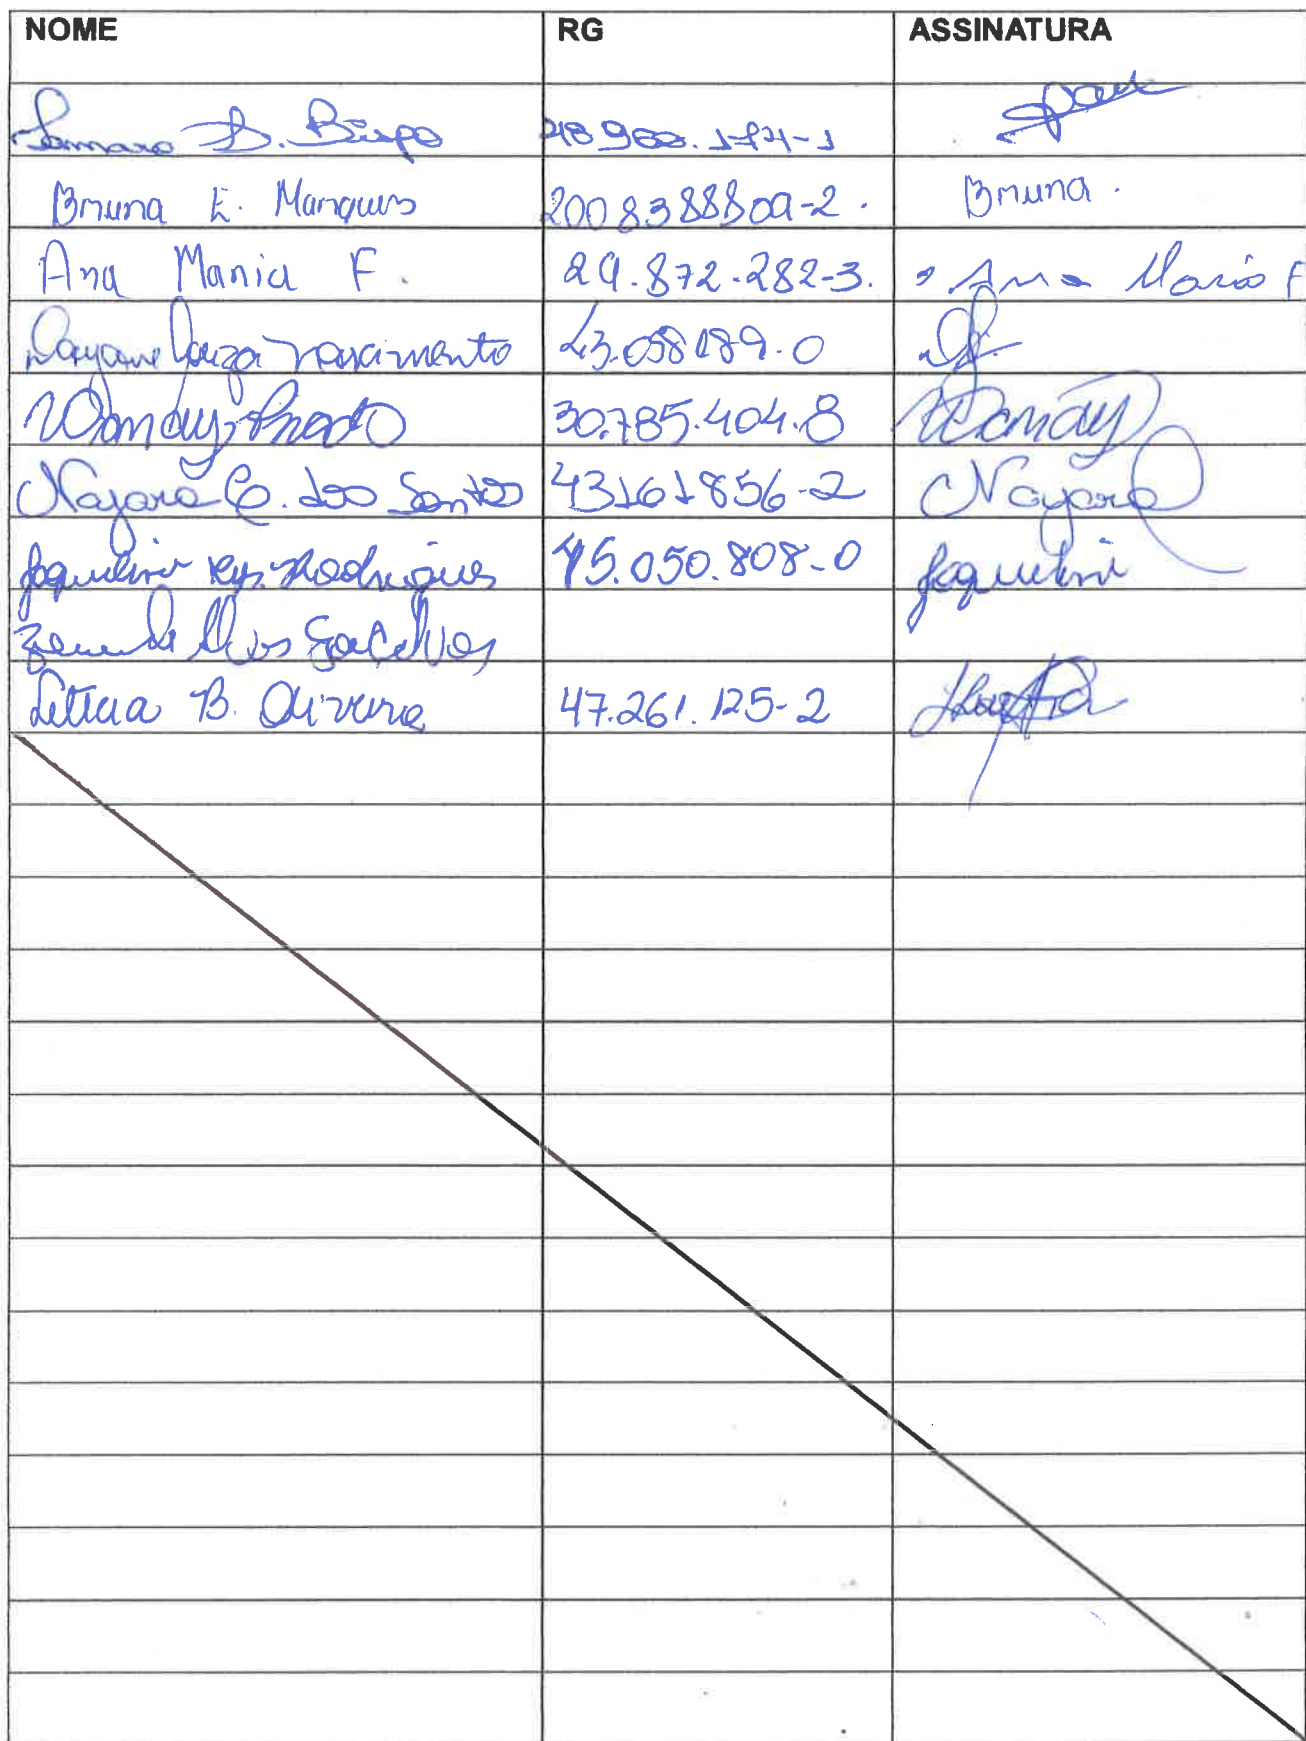 NOME RG ASSINATURA
Samara D. Bispo 48 900.174-1
Bruna E. Marques 2008388809-2. Bruna.
Ana Maria F. 29.872.282-3. Ana Maria F
Dayane Souza nascimento 43.058189.0
Wanduy Prado 30.785.404.8 Wanduy
Nayara C. dos Santos 43161856-2 Nayara
Jaqueline Rodrigues 45.050.808-0 Jaqueline
Alves
Leticia B. Oliveira 47.261.125-2